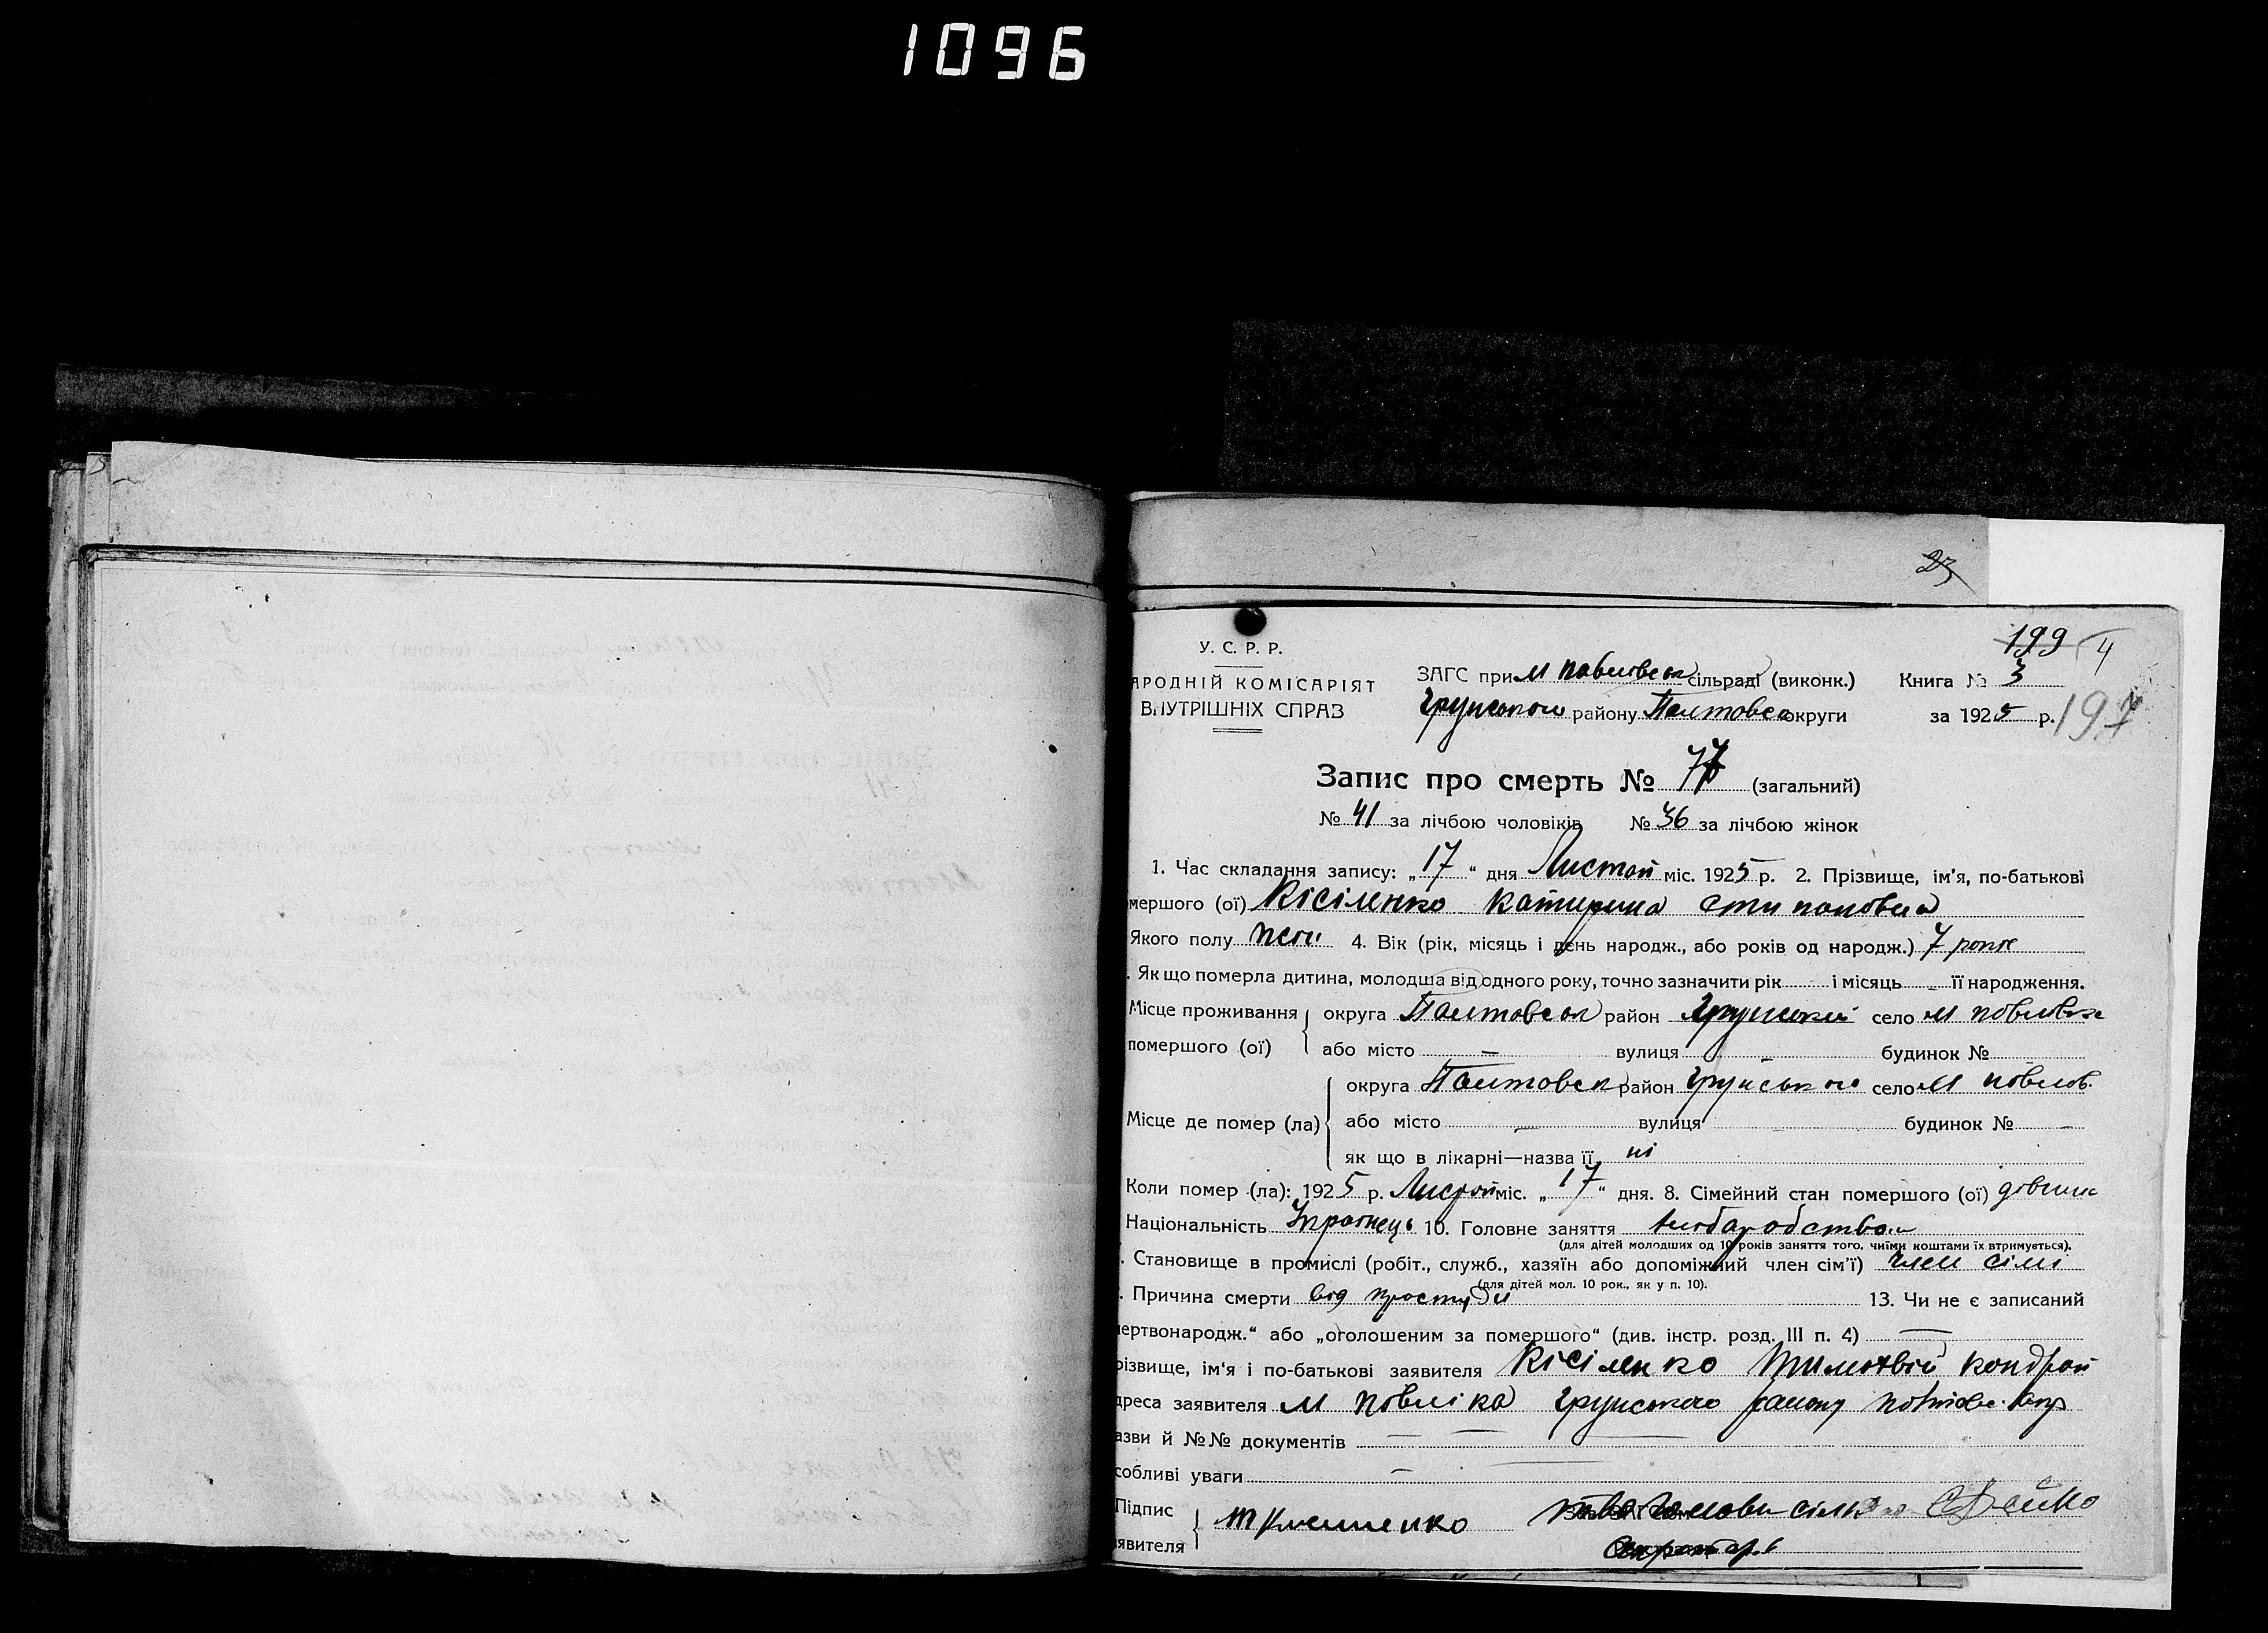 1096
23
199 4
У. С. Р. Р.
АРОДНІЙ КОМІСАРІЯТ
ВНУТРІШНІХ СПРАВ
ЗАГС при М Павловськ сільраді (виконк.) Книга № 3
Грунського району Полтовськ округи за 1925 р. 197
Запис про смерть № 77 (загальний)
№ 41 за лічбою чоловіків № 36 за лічбою жінок
1. Час складання запису: „17“ дня Листоп міс. 1925 р. 2. Прізвище, ім’я, по-батькові
мершого (ої) Кісіленко Катирина
Якого полу жен. 4. Вік (рік, місяць і день народж., або років од народж.) 7 років
. Як що померла дитина, молодша від одного року, точно зазначити рік і місяць – її народження.
Місце проживання округа Полтовськ район Грунський село М Повловка
помершого (ої) або місто – вулиця – будинок № –
Місце де помер (ла) округа Полтовськ район Грунського село М Повлов.
або місто – вулиця – будинок № –
як що в лікарні—назва її ні
Коли помер (ла): 1925 р. Листоп міс. „17“ дня. 8. Сімейний стан помершого (ої) дівиця
Національність Украінець 10. Головне заняття хліборобство
(для дітей молодших од 10 років заняття того, чиїми коштами їх втримується).
. Становище в промислі (робіт., служб., хазяїн або допоміжний член сім’ї) член сімі
(для дітей мол. 10 рок., як у п. 10).
. Причина смерти від простуди 13. Чи не є записаний
ертвонародж.“ або „оголошеним за помершого“ (див. інстр. розд. III п. 4) —
різвище, ім’я і по-батькові заявителя Кісіленко Тимохвій Кондрат
дреса заявителя М Повлівка Грунського району
азви й №№ документів — —
собливі уваги –
Підпис
явителя
Голови сільради
Секретарь